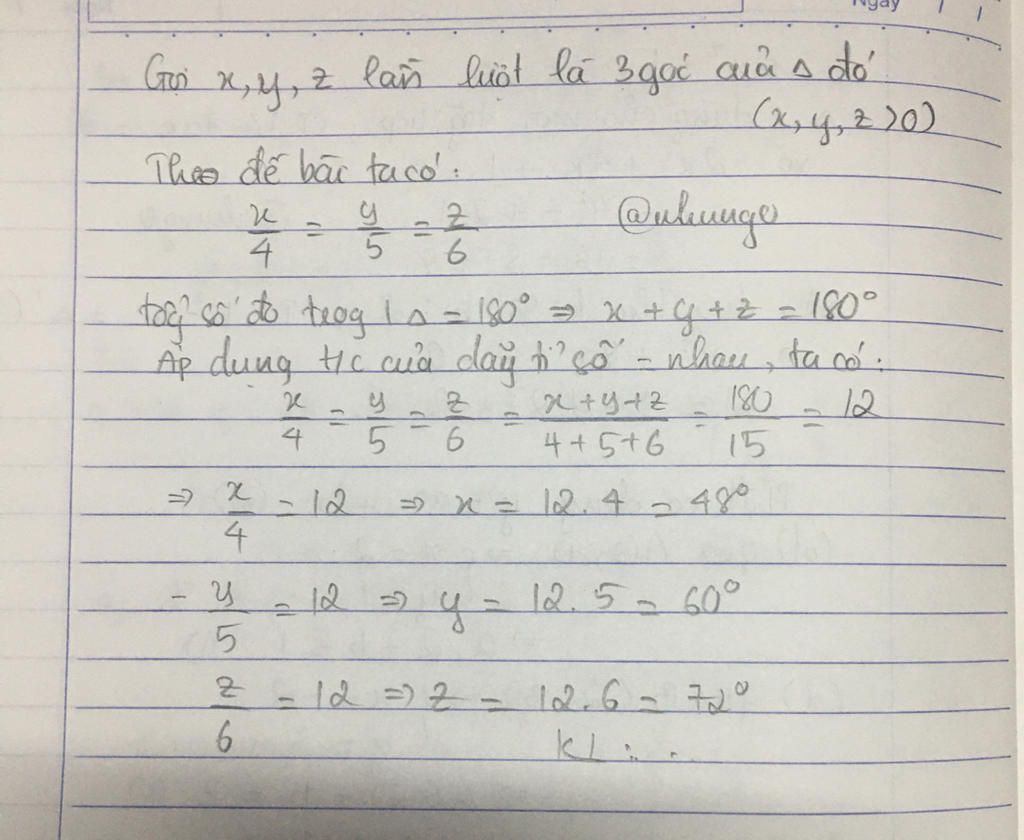 Ngày / /
Gọi x, y, z lần lượt là 3 góc của Δ đó
(x, y, z > 0)
Theo đề bài ta có :
x/4 = y/5 = z/6
@nhunge
tổg số đo trog 1 Δ = 180° ⇒ x + y + z = 180°
Áp dụng t/c của dãy tỉ số = nhau, ta có :
x/4 = y/5 = z/6 = x+y+z/4+5+6 = 180/15 = 12
⇒ x/4 = 12 ⇒ x = 12.4 = 48°
- y/5 = 12 ⇒ y = 12.5 = 60°
z/6 = 12 ⇒ z = 12.6 = 72°
KL : ...